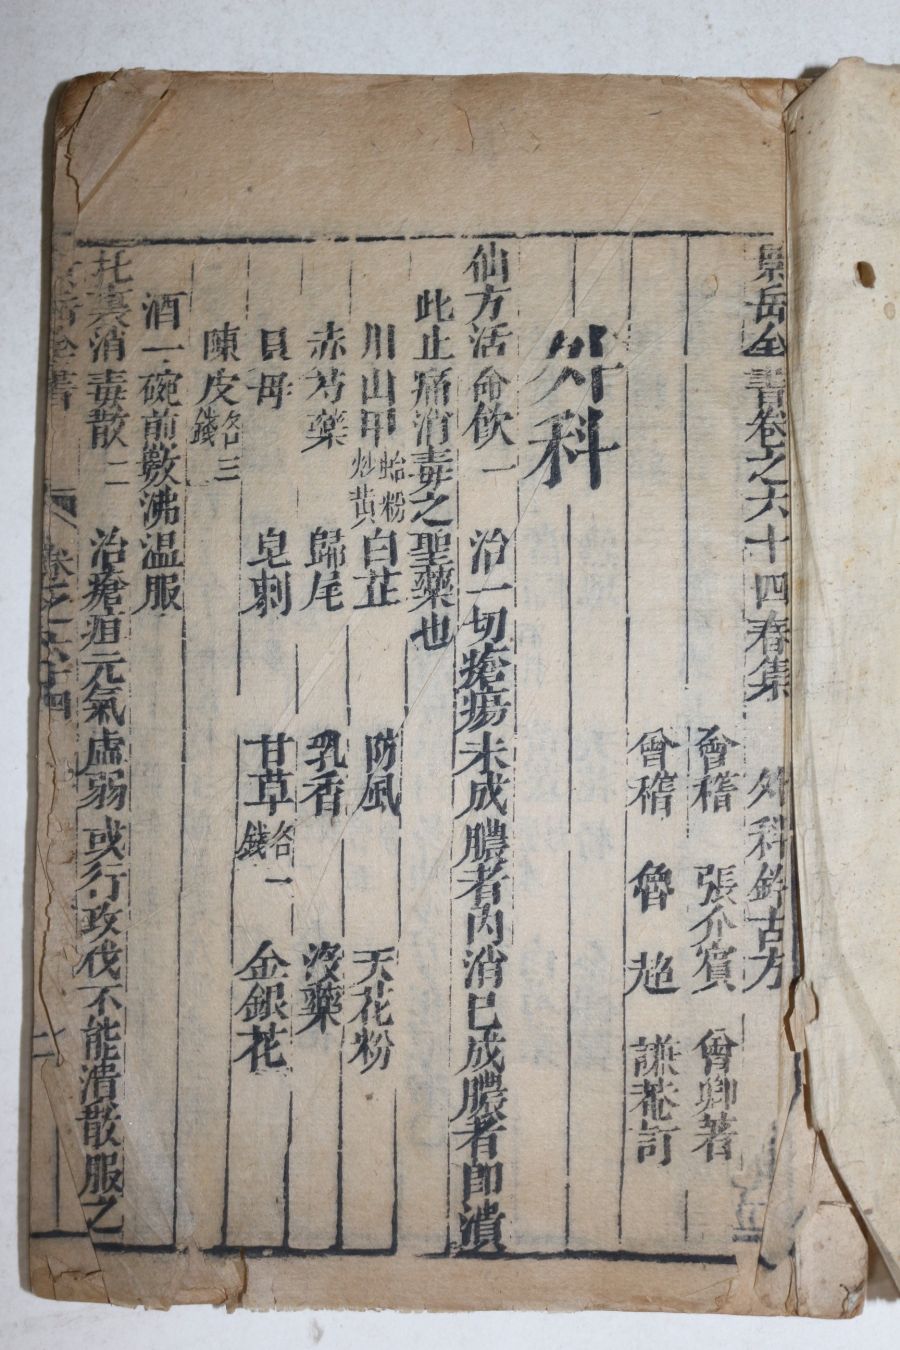 景岳全書卷之六十四春集 外科鈐古方
會稽 張介賓 會卿著
會稽 魯超 謙菴訂
外科
仙方活命飲一 治一切瘡瘍未成膿者內消已成膿者即潰
此止痛消毒之聖藥也
川山甲蛤粉炒黄 白芷 防風 天花粉
赤芍藥 歸尾 乳香 沒藥
貝母 皂刺 甘草各一錢 金銀花
陳皮各三錢
酒一碗前數沸温服
托裏消毒散二 治瘡疽元氣虛弱或行攻伐不能潰散服之
景岳全書 卷之六十四